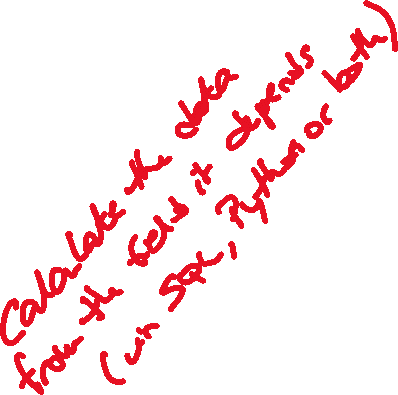 Calculate the data
from the field it depends
(via SQL, Python or both)